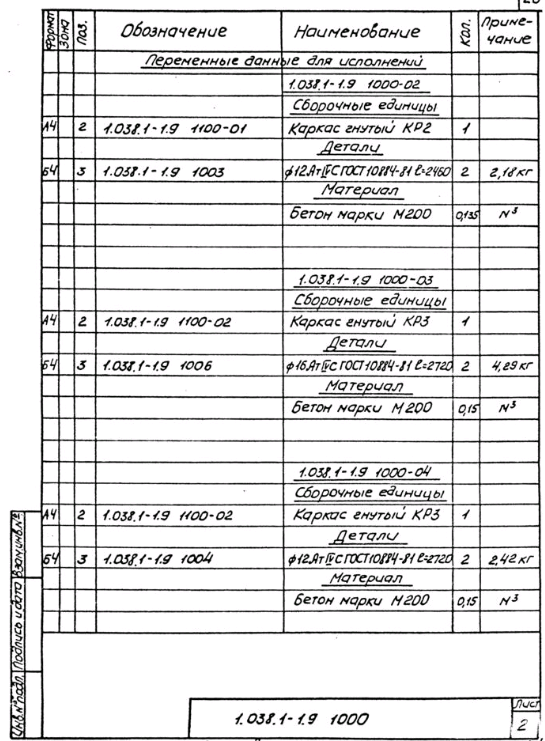 Формат Зона Поз. Обозначение Наименование Кол. Примечание
Переменные данные для исполнений
1.038.1-1.9 1000-02
Сборочные единицы
А4 2 1.038.1-1.9 1100-01 Каркас гнутый КР2 1
Детали
Б4 3 1.038.1-1.9 1003 ф12.АтIVС ГОСТ10884-81 ℓ=2460 2 2,18 кг
Материал
Бетон марки М200 0,135 м³
1.038.1-1.9 1000-03
Сборочные единицы
А4 2 1.038.1-1.9 1100-02 Каркас гнутый КР3 1
Детали
Б4 3 1.038.1-1.9 1006 ф16.АтIVС ГОСТ10884-81 ℓ=2720 2 4,29 кг
Материал
Бетон марки М200 0,15 м³
1.038.1-1.9 1000-04
Сборочные единицы
А4 2 1.038.1-1.9 1100-02 Каркас гнутый КР3 1
Детали
Б4 3 1.038.1-1.9 1004 ф12.АтIVС ГОСТ10884-81 ℓ=2720 2 2,42 кг
Материал
Бетон марки М200 0,15 м³
Инв.№ подл. Подпись и дата Взам.инв.№
1.038.1-1.9 1000
Лист
2